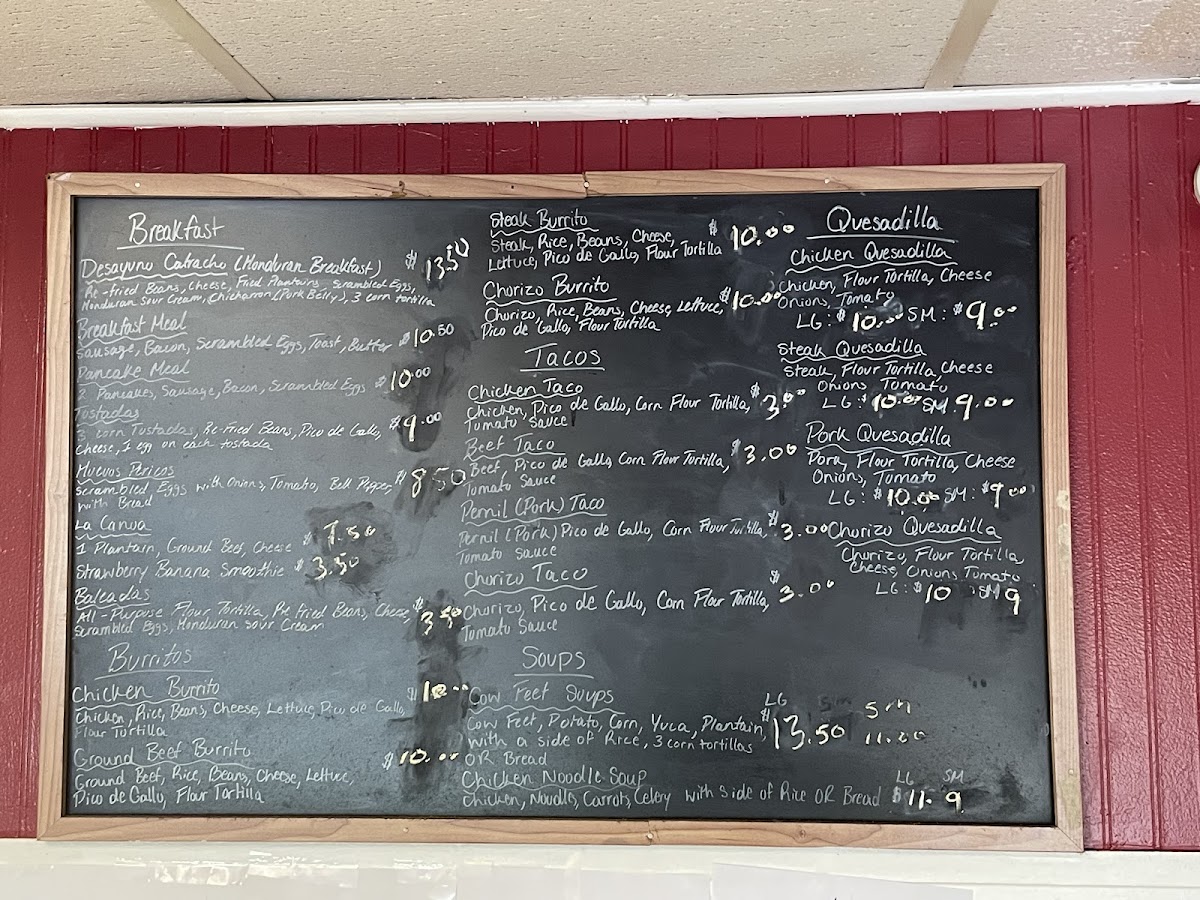 Breakfast
Desayuno Catracho (Honduran Breakfast) $ 13.50
Re-fried Beans, Cheese, Fried Plantains, Scrambled Eggs,
Honduran Sour Cream, Chicharron (Pork Belly), 3 corn tortilla
Breakfast Meal
Sausage, Bacon, Scrambled Eggs, Toast, Butter $10.50
Pancake Meal
2 Pancakes, Sausage, Bacon, Scrambled Eggs $10.00
Tostadas
3 corn Tostadas, Re-fried Beans, Pico de Gallo, $9.00
Cheese, 1 egg on each tostada
Huevos Pericos
Scrambled Eggs with Onions, Tomato, Bell Pepper, $8.50
with Bread
La Canoa
1 Plantain, Ground Beef, Cheese $ 7.50
Strawberry Banana Smoothie $ 3.50
Baleadas
All-Purpose Flour Tortilla, Re fried Beans, Cheese, $3.50
Scrambled Eggs, Honduran sour Cream
Burritos
Chicken Burrito $10.00
Chicken, Rice, Beans, Cheese, Lettuce, Pico de Gallo,
Flour Tortilla
Ground Beef Burrito $10.00
Ground Beef, Rice, Beans, Cheese, Lettuce,
Pico de Gallo, Flour Tortilla
Steak Burrito $10.00
Steak, Rice, Beans, Cheese,
Lettuce, Pico de Gallo, Flour Tortilla
Chorizo Burrito
Chorizo, Rice, Beans, Cheese, Lettuce, $10.00
Pico de Gallo, Flour Tortilla
Tacos
Chicken Taco
Chicken, Pico de Gallo, Corn Flour Tortilla, $3.00
Tomato Sauce
Beef Taco
Beef, Pico de Gallo, Corn Flour Tortilla, $3.00
Tomato Sauce
Pernil (Pork) Taco
Pernil (Pork) Pico de Gallo, Corn Flour Tortilla, $3.00
Tomato Sauce
Chorizo Taco
Chorizo, Pico de Gallo, Corn Flour Tortilla, $3.00
Tomato Sauce
Soups
Cow Feet Suups LG Sm
Cow Feet, Potato, Corn, Yuca, Plantain, $13.50 11.00
with a side of Rice, 3 corn tortillas
OR Bread
Chicken Noodle Soup LG SM
Chicken, Noodle, Carrots, Celery with side of Rice OR Bread $11. 9
Quesadilla
Chicken Quesadilla
Chicken, Flour Tortilla, Cheese
Onions, Tomato
LG: $10.00 SM: $9.00
Steak Quesadilla
Steak, Flour Tortilla, Cheese
Onions, Tomato
LG: $10.00 SM 9.00
Pork Quesadilla
Pork, Flour Tortilla, Cheese
Onions, Tomato
LG: $10.00 SM: $9.00
Chorizo Quesadilla
Chorizo, Flour Tortilla,
Cheese, Onions, Tomato
LG: $10 SM 9